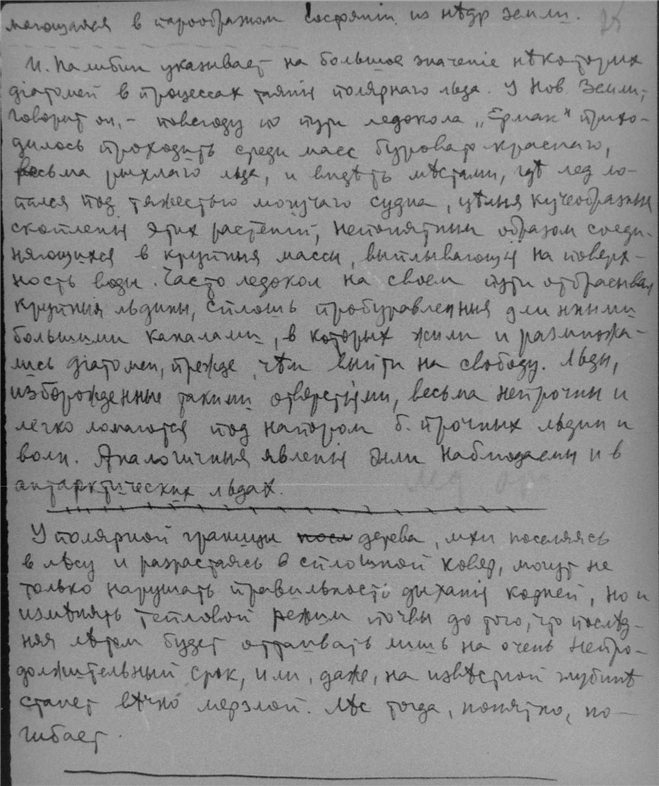 мегощаяся в парообразном состоянiи из нѣдр земли.
И. Палибин указывает на большое значенiе нѣкоторых
дiатомей в процессах таянiя полярнаго льда. У Нов. Земли,
говорит он, – повсюду по пути ледокола „Ермак" прихо-
дилось проходить среди масс буровато-краснаго,
весьма рыхлаго льда, и видѣть мѣстами, гдѣ лед ло-
мался под тяжестью могучаго судна, цѣлыя кучеобразныя
скопленiя этих растенiй, непонятным образом соеди-
няющихся в крупныя массы, выплывающiя на поверх-
ность воды. Часто ледокол на своем пути отбрасывал
крупныя льдины, сплошь пробуравленныя длинными
большими каналами, в которых жили и размножа-
лись дiатомеи, прежде, чѣм выйти на свободу. Льды,
изборожденные такими отверстiями, весьма непрочны и
легко ломаются под напором б. прочных льдин и
волн. Аналогичныя явленiя были наблюдаемы и в
антарктических льдах.
У полярной границы дерева, мхи поселяясь
в лѣсу и разрастаясь в сплошной ковер, могут не
только нарушать правильность дыханiя корней, но и
измѣнять тепловой режим почвы до того, что послѣд-
няя лѣтом будет оттаивать лишь на очень непро-
должительный срок, или, даже, на извѣстной глубинѣ
станет вѣчно мерзлой. Лѣс тогда, понятно, по-
гибает.